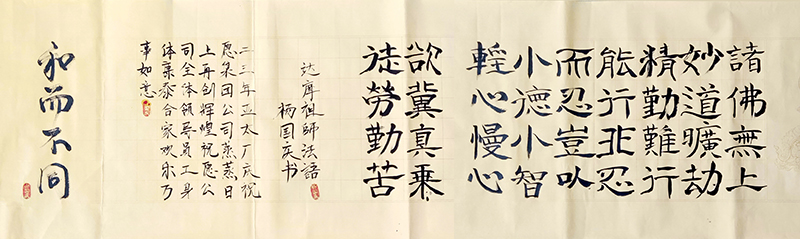 諸佛無上
妙道曠劫
精勤難行
能行非忍
而忍豈以
小德小智
輕心慢心
欲冀真乘
徒勞勤苦
达摩祖師法語
杨国庆书
二三年亚太厂庆祝
愿集团公司蒸蒸日
上再创辉煌祝愿公
司全体领导员工身
体康泰合家欢乐万
事如意
和而不同